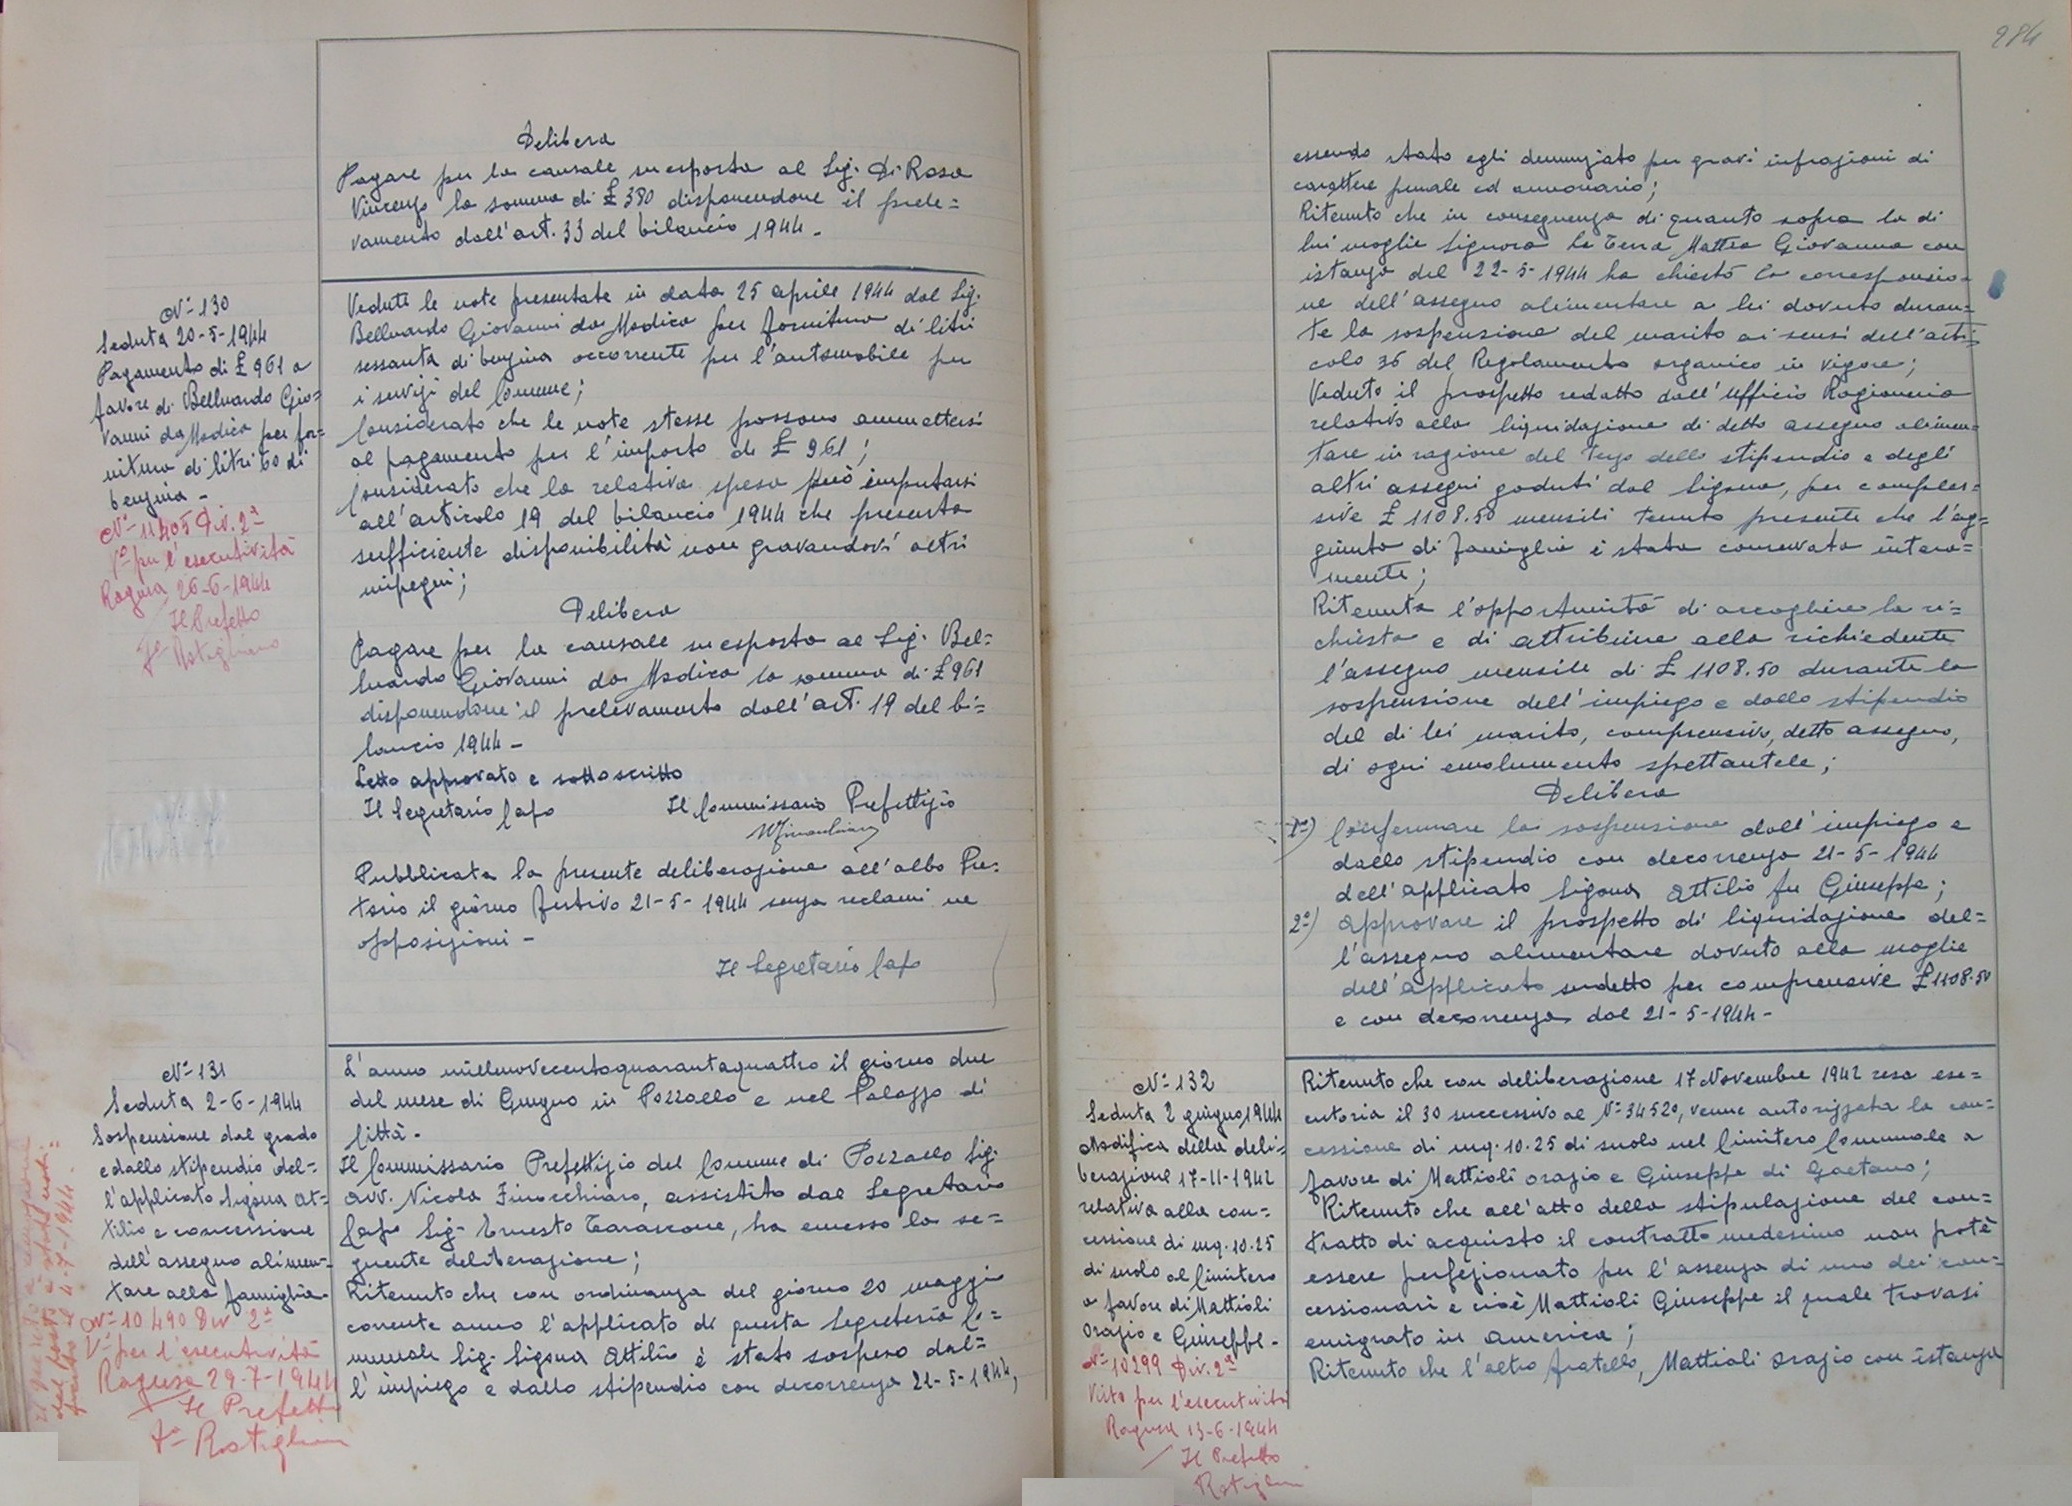 284
Delibera
Pagare per la causale suesposta al Sig. Di Rosa
Vincenzo la somma di £ 380 disponendone il prele=
vamento dall'art. 33 del bilancio 1944 -
N° 130
Seduta 20-5-1944
Pagamento di £ 961 a
favore di Belluardo Gio=
vanni da Modica per for=
nitura di litri 60 di
benzina -
N° 11405 Div. 2ª
V° per l'esecutività
Ragusa 26-6-1944
Il Prefetto
Vedute le note presentate in data 25 aprile 1944 dal Sig.
Belluardo Giovanni da Modica per fornitura di litri
sessanta di benzina occorrente per l'automobile per
i servizi del Comune;
Considerato che le note stesse possono ammettersi
al pagamento per l'importo di £ 961;
Considerato che la relativa spesa può imputarsi
all'articolo 19 del bilancio 1944 che presenta
sufficiente disponibilità non gravandovi altri
impegni;
Delibera
Pagare per la causale suesposta al Sig. Bel=
luardo Giovanni da Modica la somma di £ 961
disponendone il prelevamento dall'art. 19 del bi=
lancio 1944 -
Letto approvato e sottoscritto
Il Segretario Capo Il Commissario Prefettizio
Pubblicata la presente deliberazione all'albo Pre=
torio il giorno festivo 21-5-1944 senza reclami ne
opposizioni -
Il Segretario Capo
N° 131
Seduta 2-6-1944
Sospensione dal grado
e dallo stipendio del=
l'applicato Sigona At=
tilio e concessione
dell'assegno alimen=
tare alla famiglia -
N° 10490 Div 2ª
V° per l'esecutività
Ragusa 29-7-1944
Il Prefetto
4-7-1944
L'anno millenovecentoquarantaquattro il giorno due
del mese di Giugno in Pozzallo e nel Palazzo di
Città -
Il Commissario Prefettizio del Comune di Pozzallo Sig.
avv. Nicola Finocchiaro, assistito dal Segretario
Capo Sig. Ernesto Tarascone, ha emesso la se=
guente deliberazione;
Ritenuto che con ordinanza del giorno 20 maggio
corrente anno l'applicato di questa Segreteria Co=
munale Sig. Sigona Attilio è stato sospeso dal=
l'impiego e dallo stipendio con decorrenza 21-5-1944,
essendo stato egli denunziato per gravi infrazioni di
carattere penale ed annonario;
Ritenuto che in conseguenza di quanto sopra la di
lui moglie Signora La Terra Mattea Giovanna con
istanza del 22-5-1944 ha chiesto la corresponsio=
ne dell'assegno alimentare a lei dovuto duran=
te la sospensione del marito ai sensi dell'arti=
colo 36 del Regolamento organico in vigore;
Veduto il prospetto redatto dall'Ufficio Ragioneria
relativo alla liquidazione di detto assegno alimen=
tare in ragione del terzo dello stipendio e degli
altri assegni goduti dal Sigona, per comples=
sive £ 1108.50 mensili tenuto presente che l'ag=
giunta di famiglia è stata conservata intera=
mente;
Ritenuta l'opportunità di accogliere la ri=
chiesta e di attribuire alla richiedente
l'assegno mensile di £ 1108.50 durante la
sospensione dell'impiego e dallo stipendio
del di lei marito, comprensivo, detto assegno,
di ogni emolumento spettantele;
Delibera
1°) Confermare la sospensione dall'impiego e
dallo stipendio con decorrenza 21-5-1944
dell'applicato Sigona Attilio fu Giuseppe;
2°) approvare il prospetto di liquidazione del=
l'assegno alimentare dovuto alla moglie
dell'applicato sudetto per comprensive £ 1108.50
e con decorrenza dal 21-5-1944 -
N° 132
Seduta 2 giugno 1944
Modifica della deli=
berazione 17-11-1942
relativa alla con=
cessione di mq. 10.25
di suolo al Cimitero
a favore di Mattioli
Orazio e Giuseppe -
N° 10299 Div. 2ª
Visto per l'esecutività
Ragusa 13-6-1944
Il Prefetto
Ritenuto che con deliberazione 17 Novembre 1942 resa ese=
cutoria il 30 successivo al N° 34520, venne autorizzata la con=
cessione di mq. 10.25 di suolo nel Cimitero Comunale a
favore di Mattioli Orazio e Giuseppe di Gaetano;
Ritenuto che all'atto della stipulazione del con=
tratto di acquisto il contratto medesimo non potè
essere perfezionato per l'assenza di uno dei con=
cessionari e cioè Mattioli Giuseppe il quale trovasi
emigrato in America;
Ritenuto che l'altro fratello, Mattioli Orazio con istanza